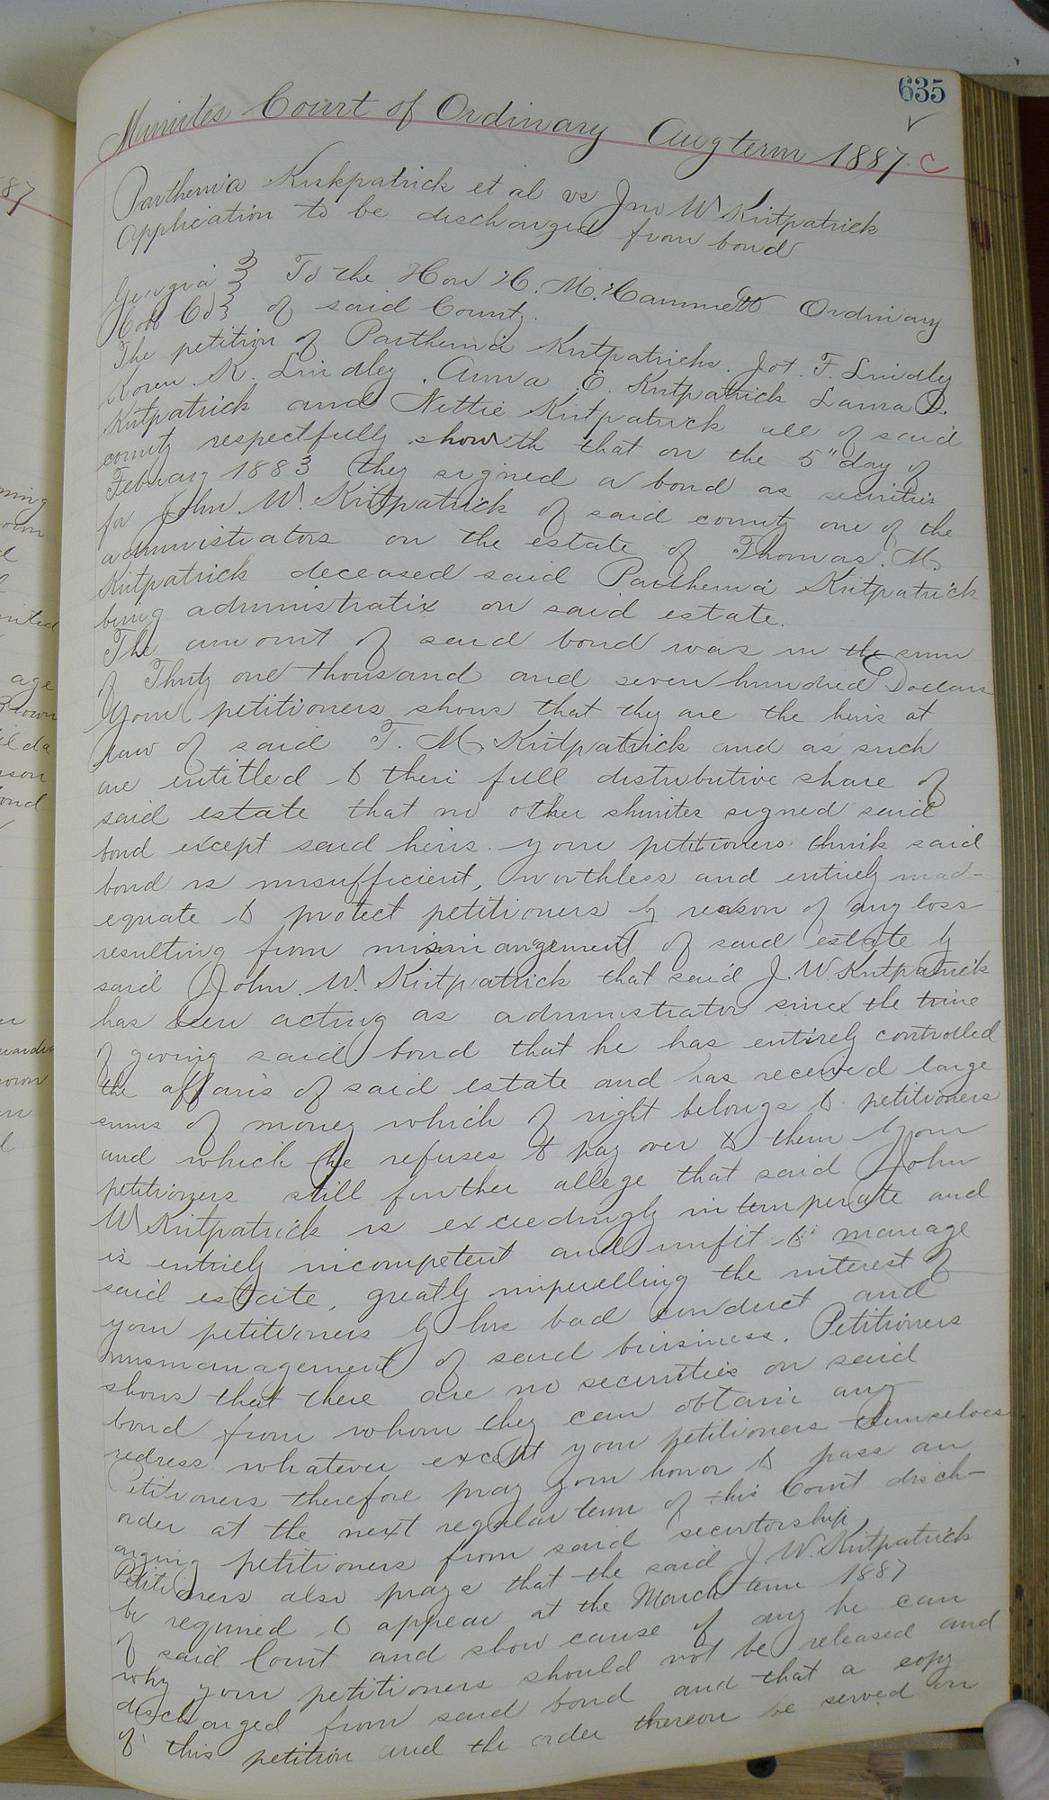 635
Minutes Court of Ordinary Aug term 1887. C
Parthenia Kirkpatrick et al vs Jno W Kirtpatrick
Application to be discharged from bond
Georgia } To the Hon H. M. Hammett Ordinary
Cobb Co } of said County.
The petition of Parthenia Kirtpatrick. Jot. F. Lindley
Koren K. Lindley. Anna E. Kirtpatrick Laura D.
Kirtpatrick and Nettie Kirtpatrick all of said
county respectfully showeth that on the 5" day of
Febuary 1883 they signed a bond as securities
for John. W. Kirtpatrick of said county one of the
administrators on the estate of Thomas. M.
Kirtpatrick deceased said Parthenia Kirtpatrick
being administratix on said estate.
The amount of said bond was in the sum
of Thirty one thousand and seven hundred Dollars
Your petitioners shows that they are the heirs at
law of said T. M. Kirtpatrick and as such
are entitled to their full distributive share of
said estate that no other shurites signed said
bond except said heirs. your petitioners think said
bond is unsufficient, worthless and entirely inad-
equate to protect petitioners by reason of any loss
resulting from missmanagement of said estate by
said John. W. Kirtpatrick that said J. W. Kirtpatrick
has been acting as administrator since the time
of giving said bond that he has entirely controlled
the affairs of said estate and has received large
sums of money which of right belongs to petitioners
and which he refuses to pay over to them Your
petitioners still further allege that said John
W Kirtpatrick is exceedingly intemperate and
is entirely incompetent and unfit to manage
said estate, greatly imperelling the interest of
your petitioners by his bad conduct and
missmanagement of said buisiness. Petitioners
shows that there are no securities on said
bond from whom they can obtain any
redress whatever except your petitioners themselves
Petitioners therefore pray your honor to pass an
order at the next regular term of this Court disch-
arging petitioners from said securtorship,
Petitioners also prays that the said J. W. Kirtpatrick
be required to appear at the March term 1887
of said Court and show cause if any he can
why your petitioners should not be released and
discharged from said bond and that a copy
of this petition and the order thereon be served on